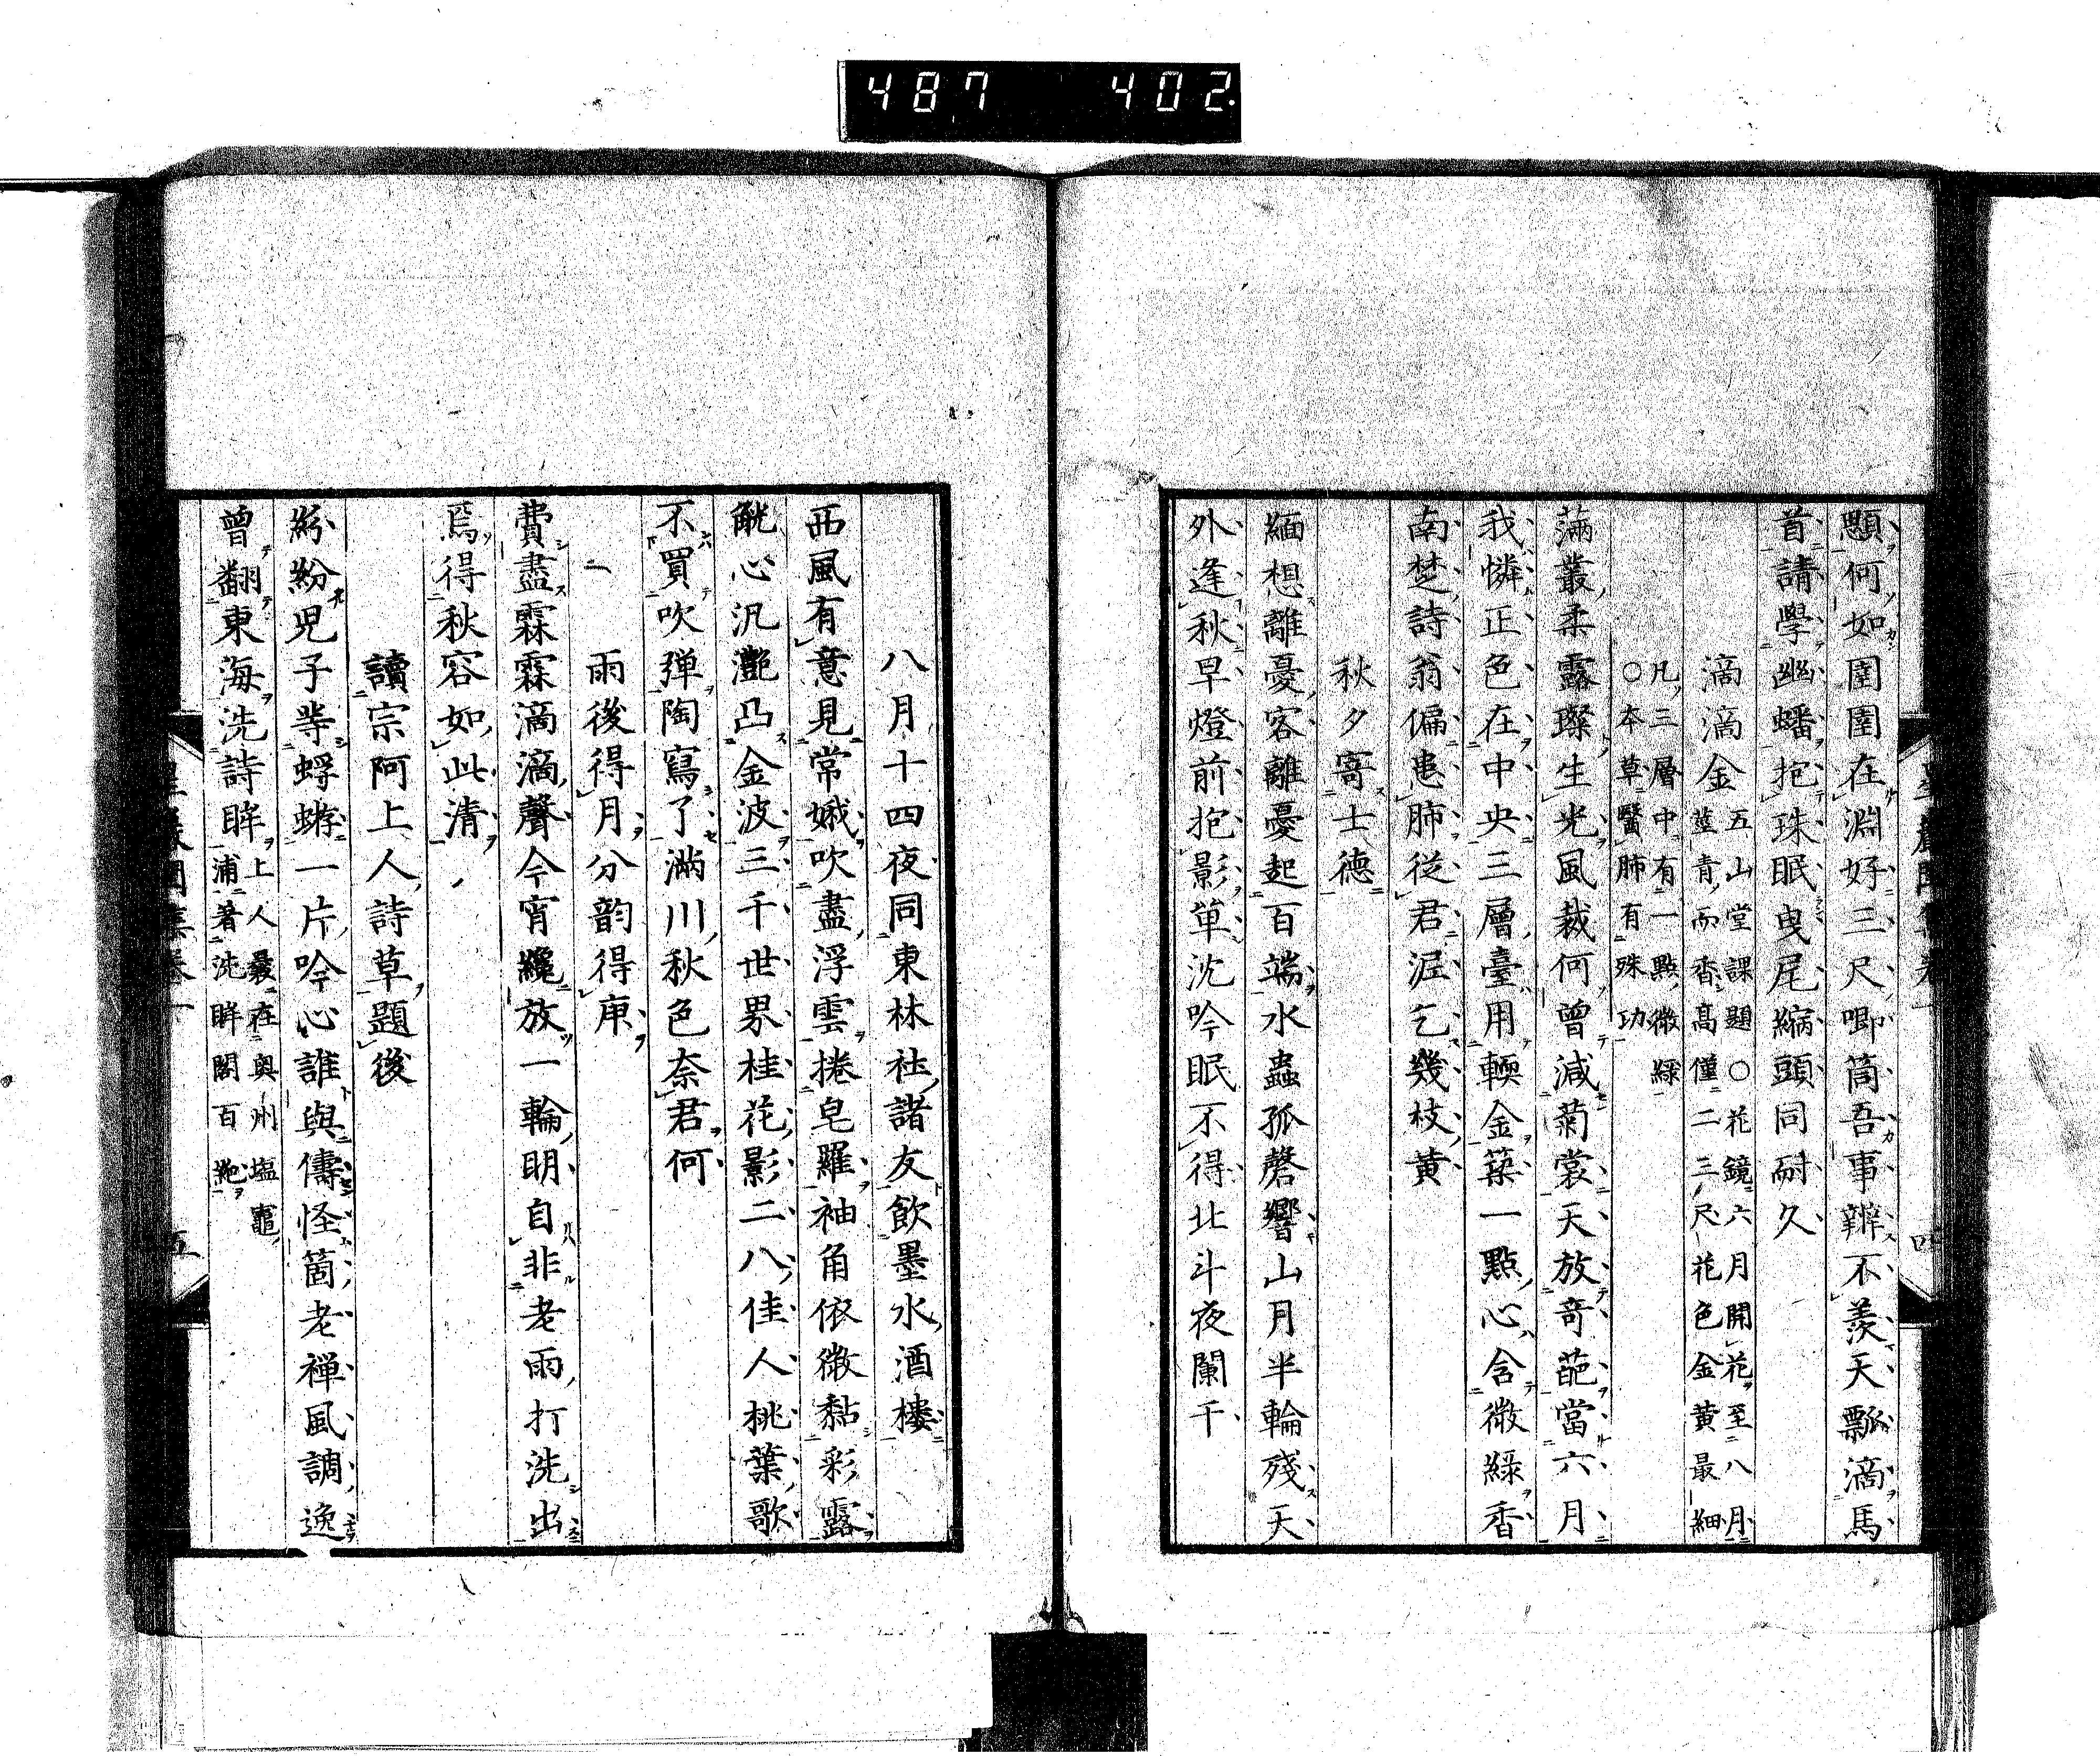 487 402
顯何如圉圉在淵好三尺唧筒吾事辦不羨天瓢滴馬
首請學幽蟠抱珠眠曳尾縮頭同耐久
滴滴金 五山堂課題○花鏡六月開花至八月
莖青而香高僅二三尺花色金黄最細
凡三層中有一點微綠
○本草醫肺有殊功
滿叢柔露璨生光風裁何曾減菊裳天放奇葩當六月
我憐正色在中央三層臺用輭金築一點心含微綠香
南楚詩翁偏患肺從君涇乞幾枝黄
秋夕寄士德
緬想離憂客離憂起百端水蟲孤磬響山月半輪殘天
外逢秋早燈前抱影單沈吟眠不得北斗夜闌干
四
八月十四夜同東林社諸友飲墨水酒樓
西風有意見常娥吹盡浮雲捲皂羅袖角依微黏彩露
觥心汎灔凸金波三千世界桂花影二八佳人桃葉歌
不買吹弾陶寫了滿川秋色奈君何
雨後得月分韵得庚
費盡霖霖滴滴聲今宵纔放一輪明自非老雨打洗出
焉得秋容如此清
讀宗阿上人詩草題後
紛紛児子等蜉蝣一片吟心誰與儔怪箇老禅風調逸
曾翻東海洗詩眸 上人曩在奥州塩竈
浦著洗眸閣百絶
五